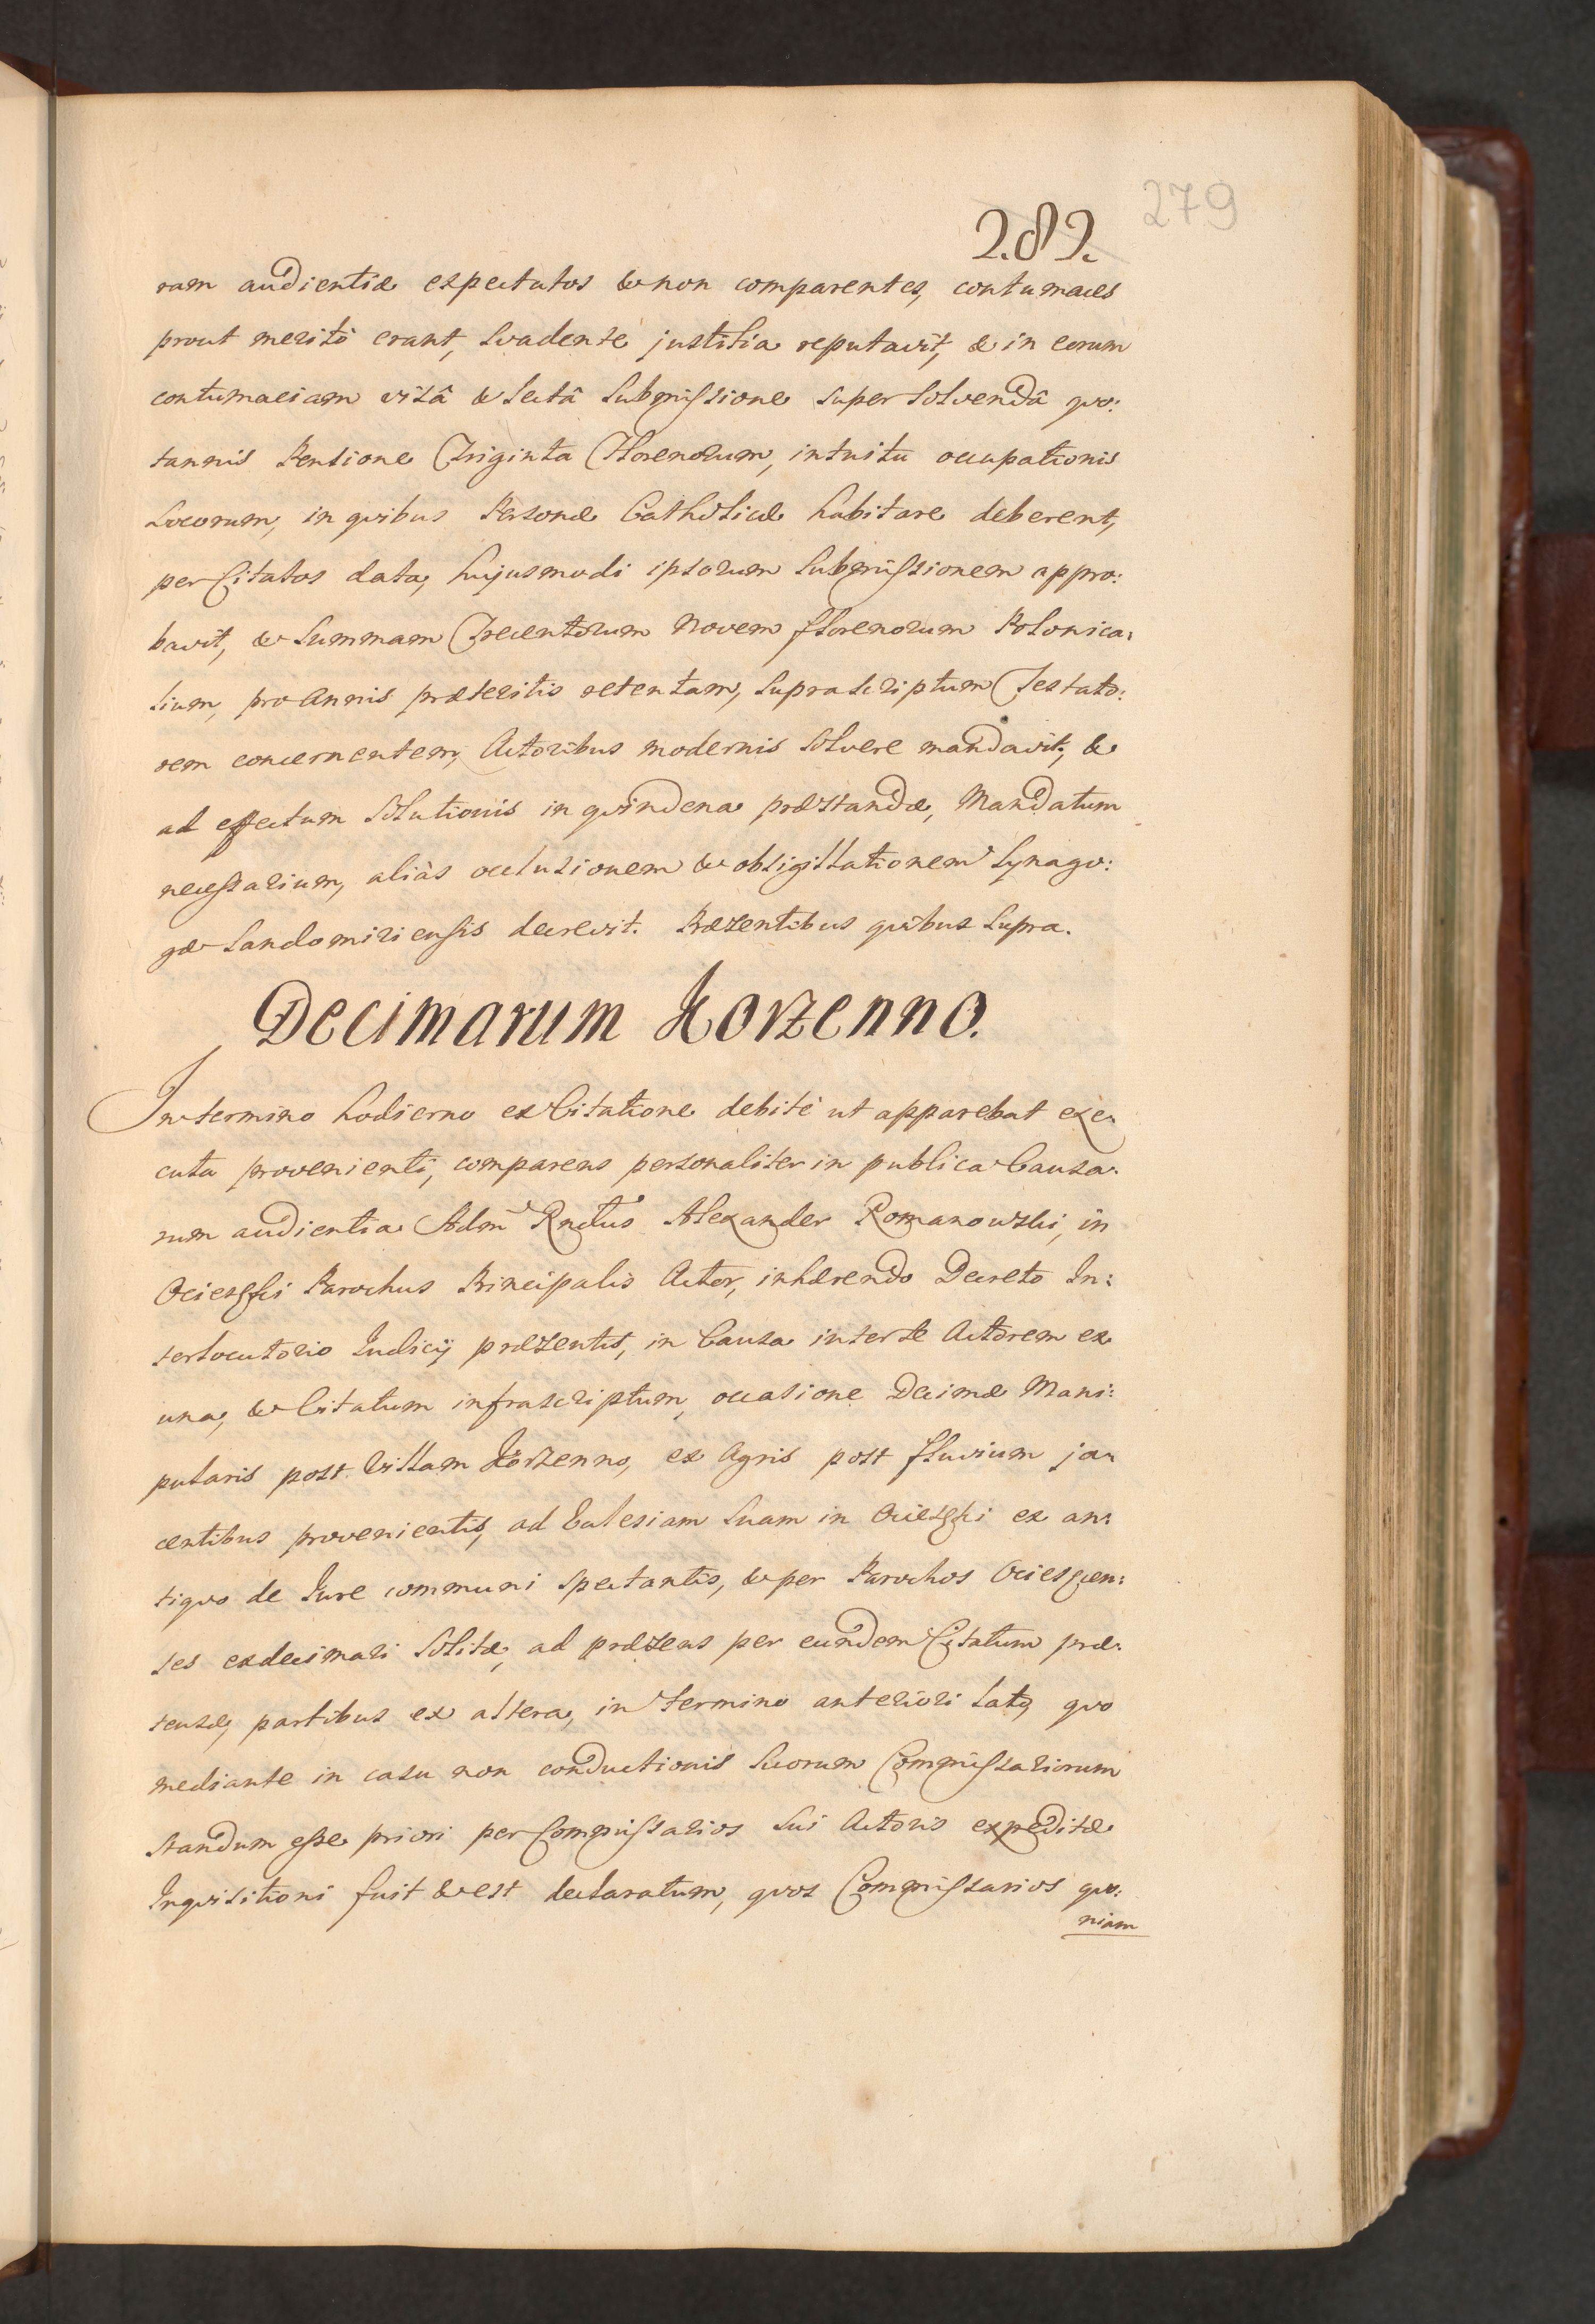 279
282.
ram audientiæ expectatos & non comparentes, contumaces
prout meritò erant, Svadente justitia reputavit, & in eorum
contumaciam visâ & Lectâ Submissione super Solvendâ quo:
tannis Pensione Triginta Florenorum, intuitu occupationis
Locorum, in quibus Personæ Catholicæ habitare deberent,
per Citatos data, hujusmodi ipsorum Submissionem appro:
bavit, & Summam Trecentorum Novem florenorum Polonica:
lium, pro Annis præteritis retentam, Suprascriptum Testato:
rem concernentem, Actoribus modernis Solvere mandavit, &
ad effectum Solutionis in quindena præstandæ, Mandatum
necessarium, aliàs occlusionem & obsigillationem Synago:
gæ Sandomiriensis decrevit. Præsentibus quibus Supra.
Decimarum Korzenno.
In termino hodierno ex Citatione debitè ut apparebat exe:
cuta provenienti, comparens personaliter in publica Causa:
rum audientia Adm Rndus Alexander Romanowski, in
Ociesęki Parochus Principalis Actor, inhærendo Decreto In:
terlocutorio Judicij præsentis, in Causa inter se Actorem ex
una, & Citatum infrascriptum, occasione Decimæ Mani:
pularis post Villam Korzenno, ex Agris post fluvium ja:
centibus provenientis, ad Ecclesiam Suam in Ociesęki ex an:
tiquo de Jure communi spectantis, & per Parochos Ociesęcen:
ses exdecimari Solitæ, ad præsens per eundem Citatum præ:
tensæ, partibus ex altera, in termino anteriori lato, quo
mediante in casu non conductionis Suorum Commissariorum
Standum esse priori per Commissarios Sui Actoris expeditæ
Inquisitioni fuit & est declaratum, quos Commissarios quo:
niam